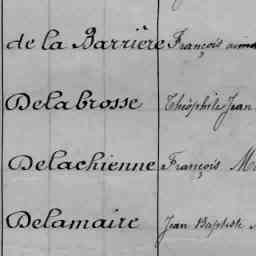 de la Barrière François
Delabrosse Théophile Jean
Delachienne François
Delamaire Jean Baptiste